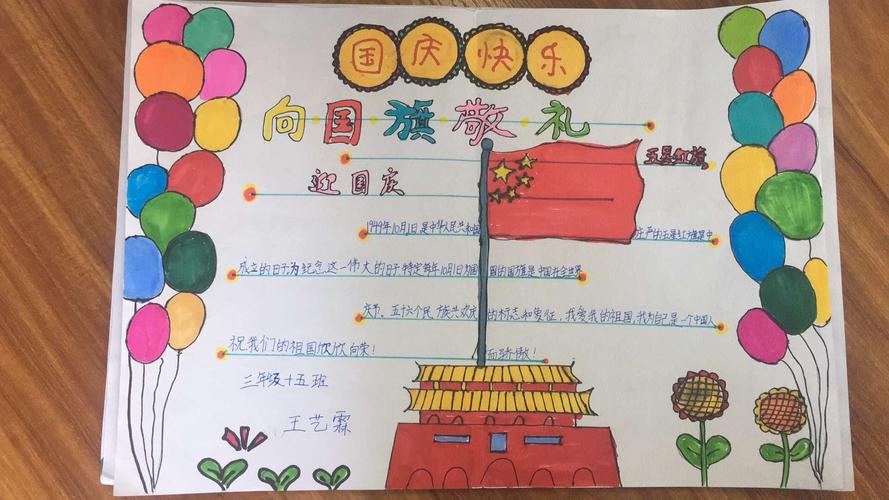 国庆快乐
向国旗敬礼
五星红旗
迎国庆
1949年10月1日是中华人民共和国
成立的日子为纪念这一伟大的日子特定每年10月1日为国
庆节、五十六个民族共欢庆
祝我们的祖国欣欣向荣！
庄严的五星红旗是中
国的国旗是中国在全世界
的标志和象征，我爱我的祖国，我为自己是一个中国人
而骄傲！
三年级十五班
王艺霖